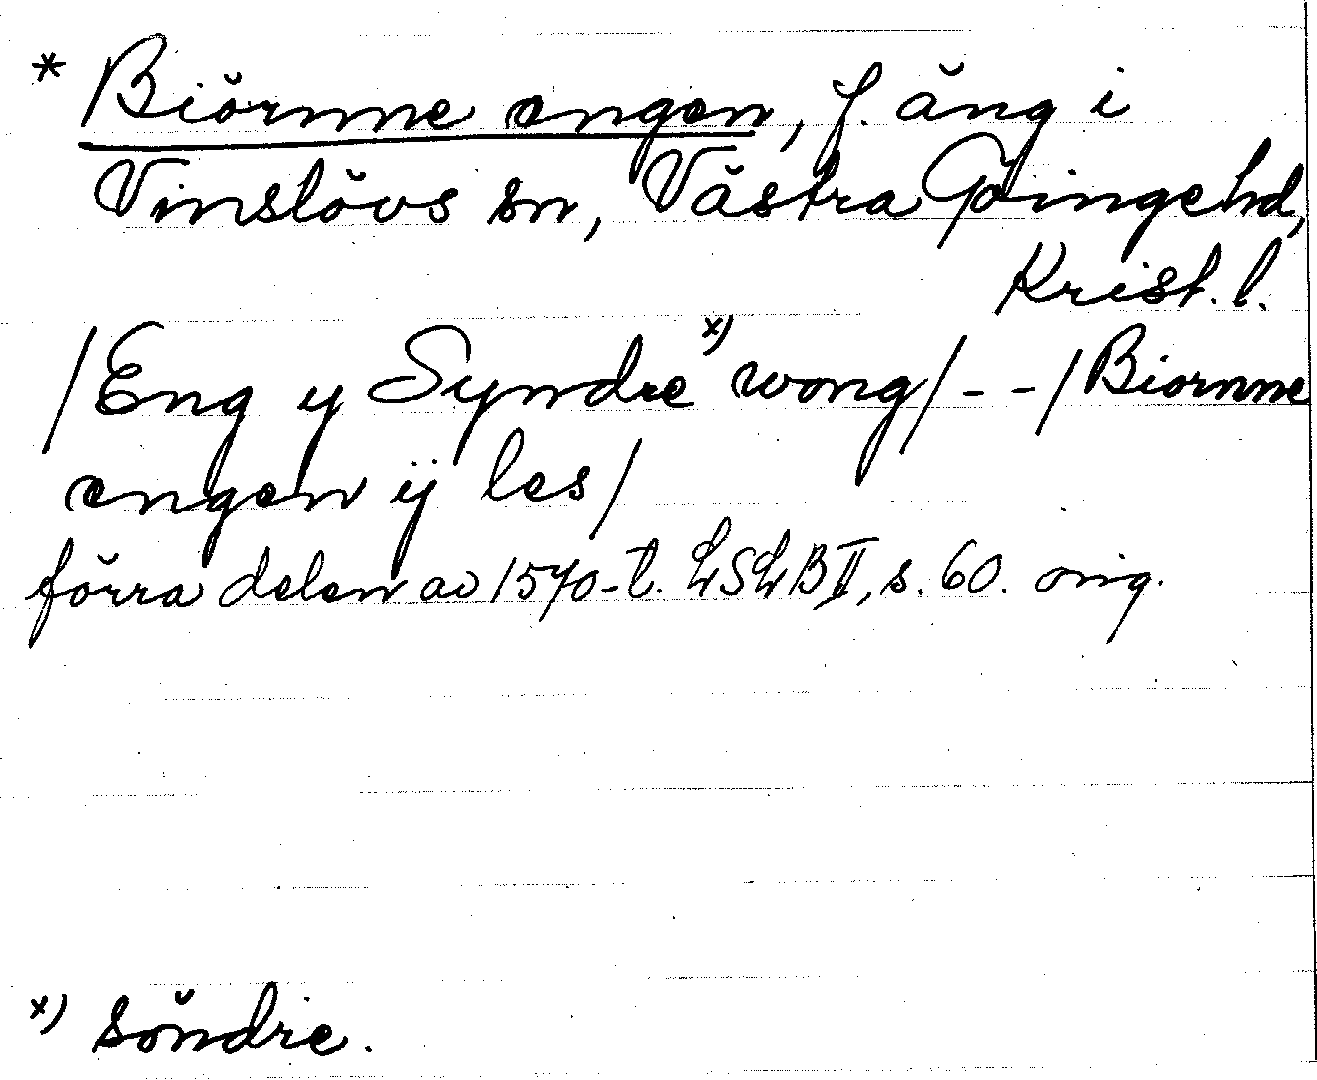 * Biörnne engen, f. äng i
Vinslövs sn, Västra Göingehd,
Krist. l.
/Eng y Syndre x) wong/ - - /Biornne
engen ÿ les/
förra delen av 1570-t. LSLB II, s. 60. orig.
x) söndre.